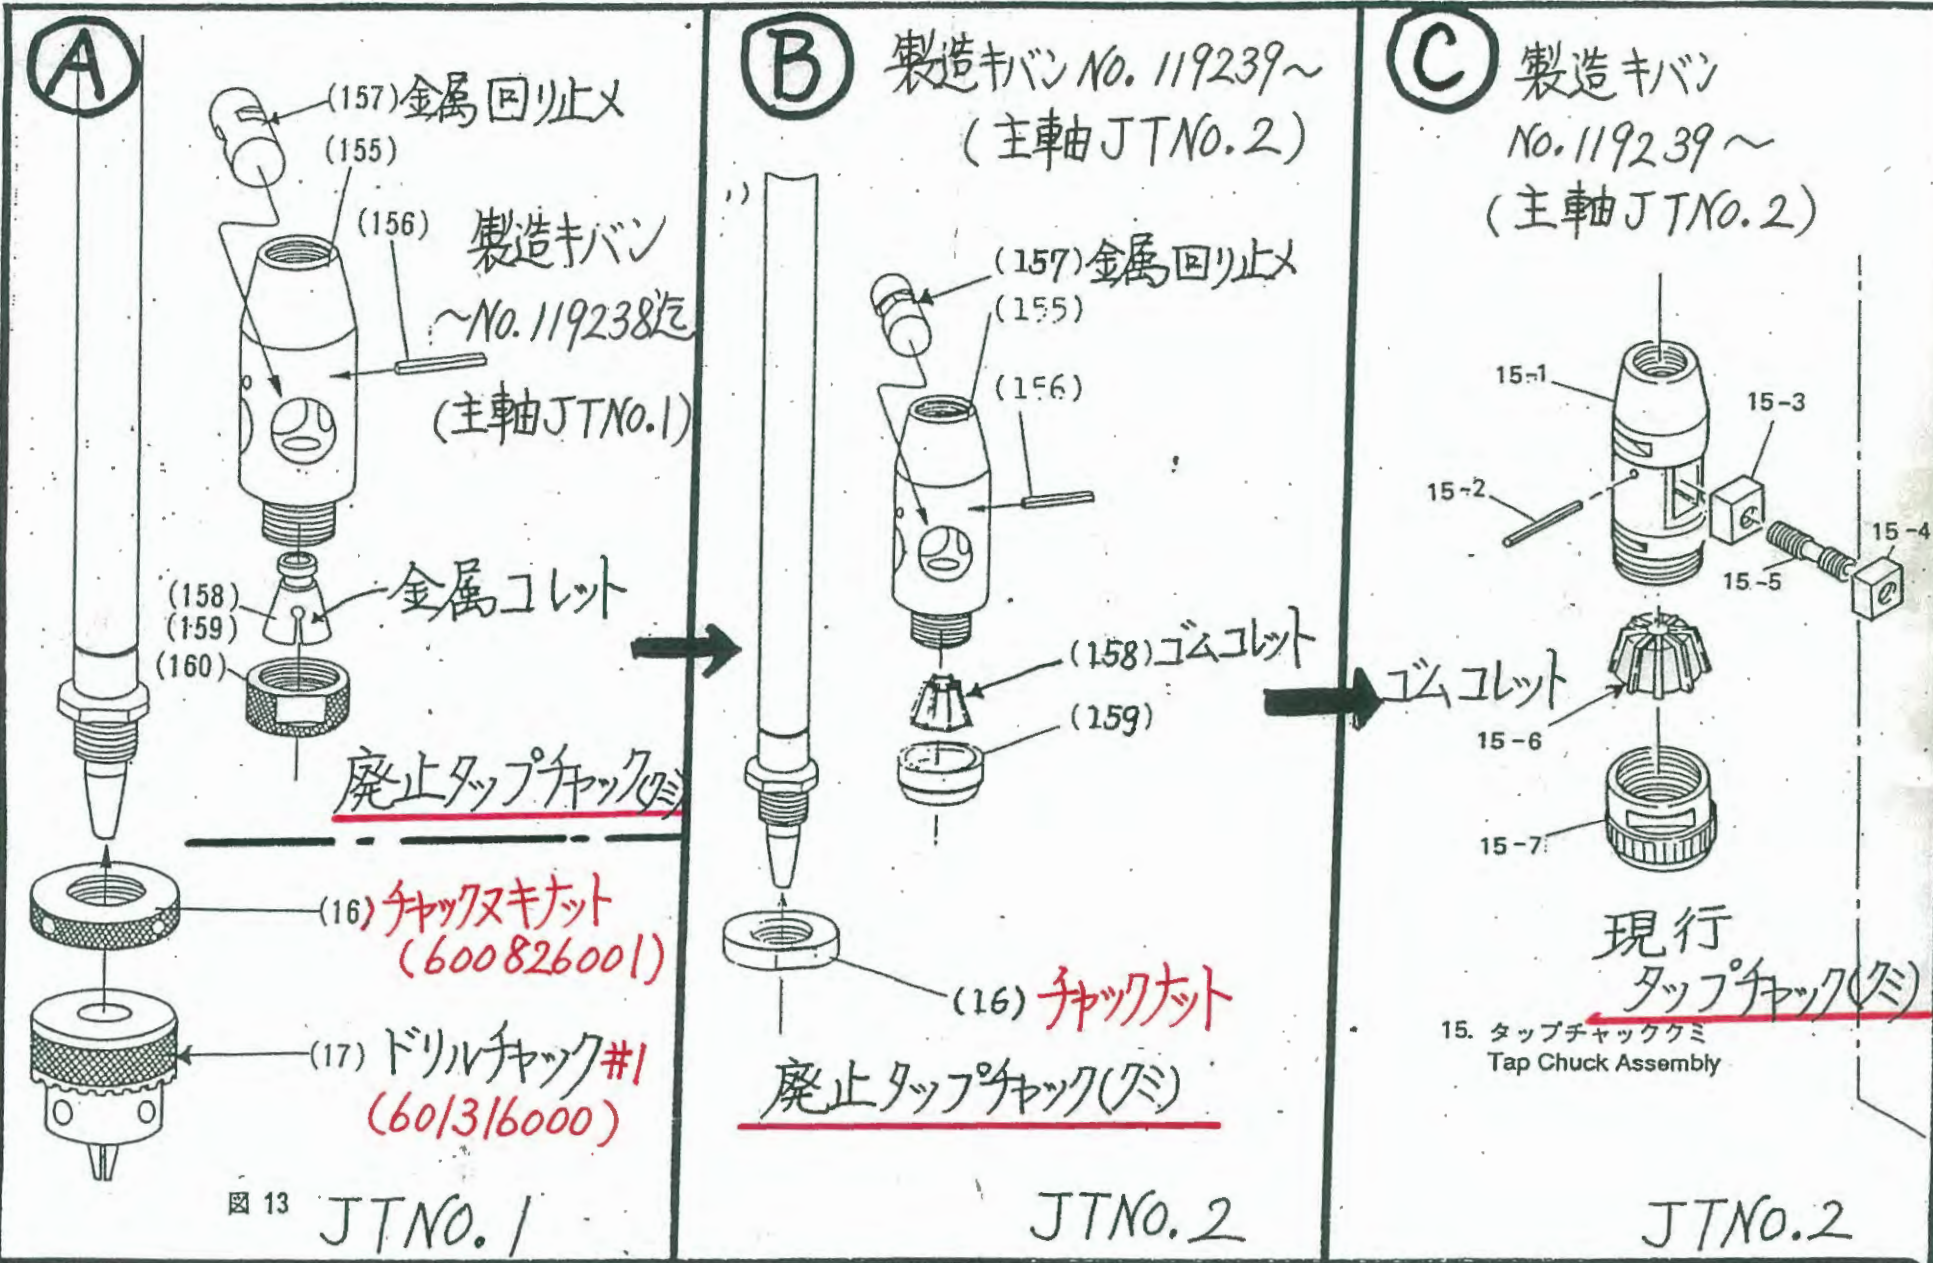 A
(157)金属回り止メ
(155)
(156)
製造キバン
~No.119238迄
(主軸JTNO.1)
(158)
(159)
金属コレット
(160)
廃止タップチャック(クミ)
(16)チャックヌキナット
(600826001)
(17)ドリルチャック#1
(601316000)
図 13
JTNO.1
B
製造キバンNO.119239~
(主軸JTNO.2)
(157)金属回り止メ
(155)
(156)
(158)ゴムコレット
(159)
(16)チャックナット
廃止タップチャック(クミ)
JTNO.2
C
製造キバン
NO.119239~
(主軸JTNO.2)
15-1
15-3
15-2
15-4
15-5
ゴムコレット
15-6
15-7
現行
タップチャック(クミ)
15. タップチャッククミ
Tap Chuck Assembly
JTNO.2